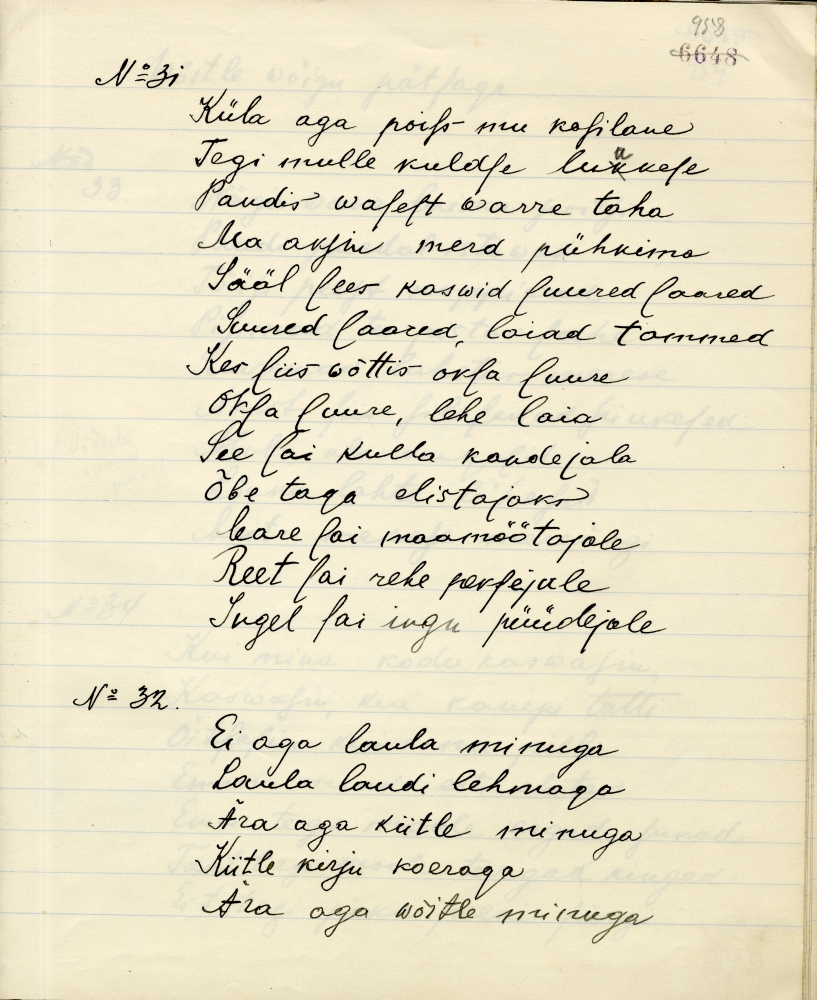 958
6648
No 31
Küla aga poiss mu kasilane
Tegi mulle kuldse luukese
Pandis wasest warre taha
Ma aksin merd pühkima
Sääl sees kaswid suured saared
Suured saared, laiad tammed
Kes siis wõttis oksa suure
Oksa suure, lehe laia
See sai kulla kandejala
Õbe taga elistajaks
Kare sai maamõõtajale
Reet sai rehe peksejale
Ingel sai ingu püüdejale
No 32.
Ei aga laula minuga
Laula laudi lehmaga
Ära aga kiitle minuga
Kiitle kirju koeraga
Ära aga wõitle minuga